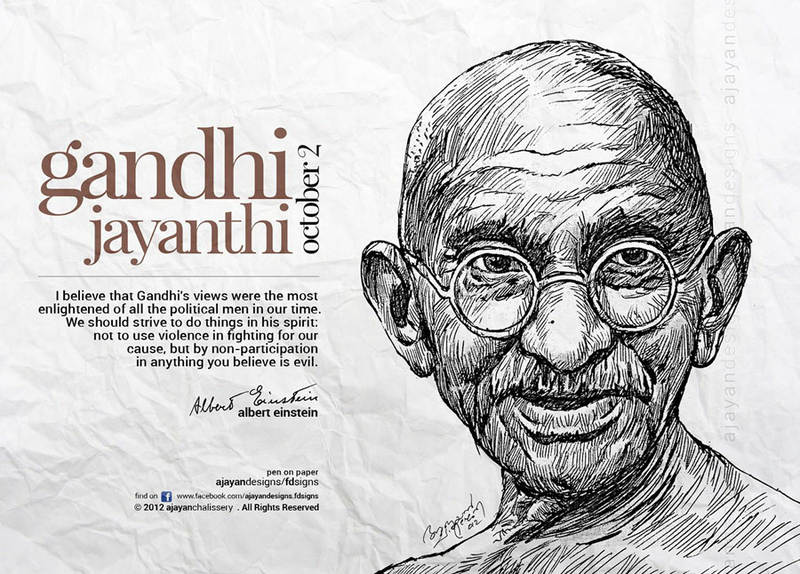 gandhi
jayanthi
october 2
I believe that Gandhi's views were the most
enlightened of all the political men in our time.
We should strive to do things in his spirit:
not to use violence in fighting for our
cause, but by non-participation
in anything you believe is evil.
Albert Einstein
albert einstein
pen on paper
ajayandesigns/fdsigns
find on f www.facebook.com/ajayandesigns.fdsigns
© 2012 ajayanchalissery . All Rights Reserved
ajayandesigns ajayandesigns ajayandes